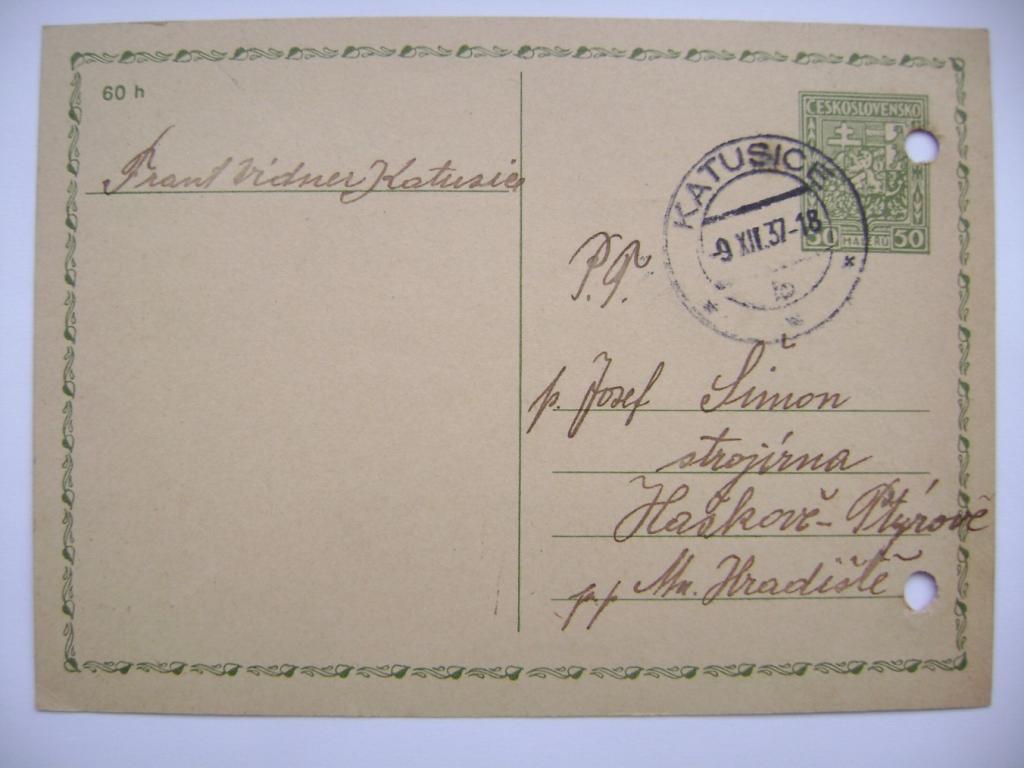 60 h
Frant Vidner Katusice
ČESKOSLOVENSKO
50 HALÉŘŮ 50
KATUSICE
-9.XII.37-18
b
P.T.
p. Josef Šimon
strojírna
Haškově - Ptýrově
p.p. Mn. Hradiště